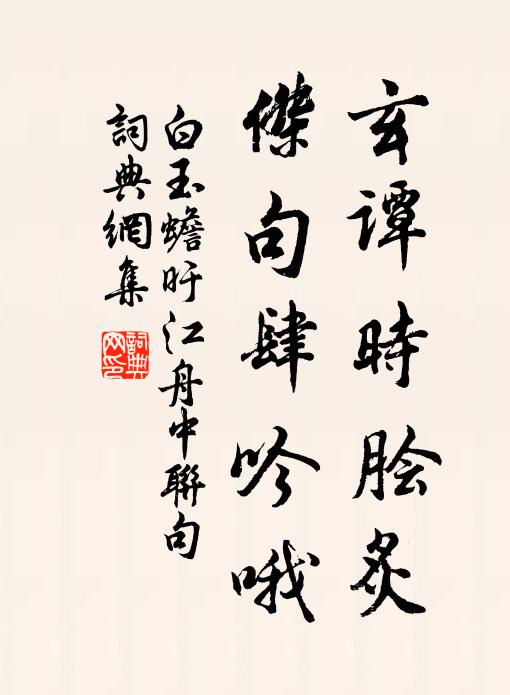 玄谭時脍炙
傑句肆吟哦
白玉蟾旴江舟中聯句
詞典網集
詞典网印